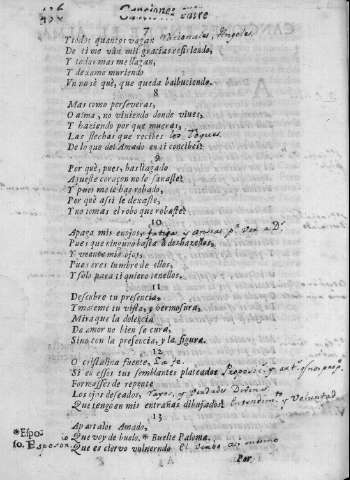 Canciones
7
Y todos quantos vagan Racionales, Angeles
De ti me vàn mil gracias refiriendo,
Y todos mas me llagan,
Y dexame muriendo
Vn no sè què, que queda balbuciendo.
8
Mas como perseveras,
O alma, no viviendo donde vives,
Y haziendo por que mueras,
Las flechas que recibes los Toques
De lo que del Amado en ti concibes?
9
Por què, pues, has llagado
Aqueste coraçon no le sanaste?
Y pues me le has robado,
Por què assi le dexaste,
Y no tomas el robo que robaste?
10
Apaga mis enojos, fatigas y ansias
Pues que ninguno basta à deshazellos,
Y veante mis ojos,
Pues eres lumbre de ellos,
Y solo para ti quiero tenellos.
11
Descubre tu presencia,
Y mateme tu vista, y hermosura,
Mira que la dolencia
De amor no bien se cura,
Sino con la presencia, y la figura.
12
O cristalina fuente, La fe.
Si en essos tus semblantes plateados
Formasses de repente
Los ojos deseados, Rayos, y Verdades Divinas
Que tengo en mis entrañas dibujados! Entendimto y Voluntad
13
Apartalos Amado,
*Espo-
Que voy de buelo. * Buelve Paloma.
so. Esposo
Que el ciervo vulnerado
Por